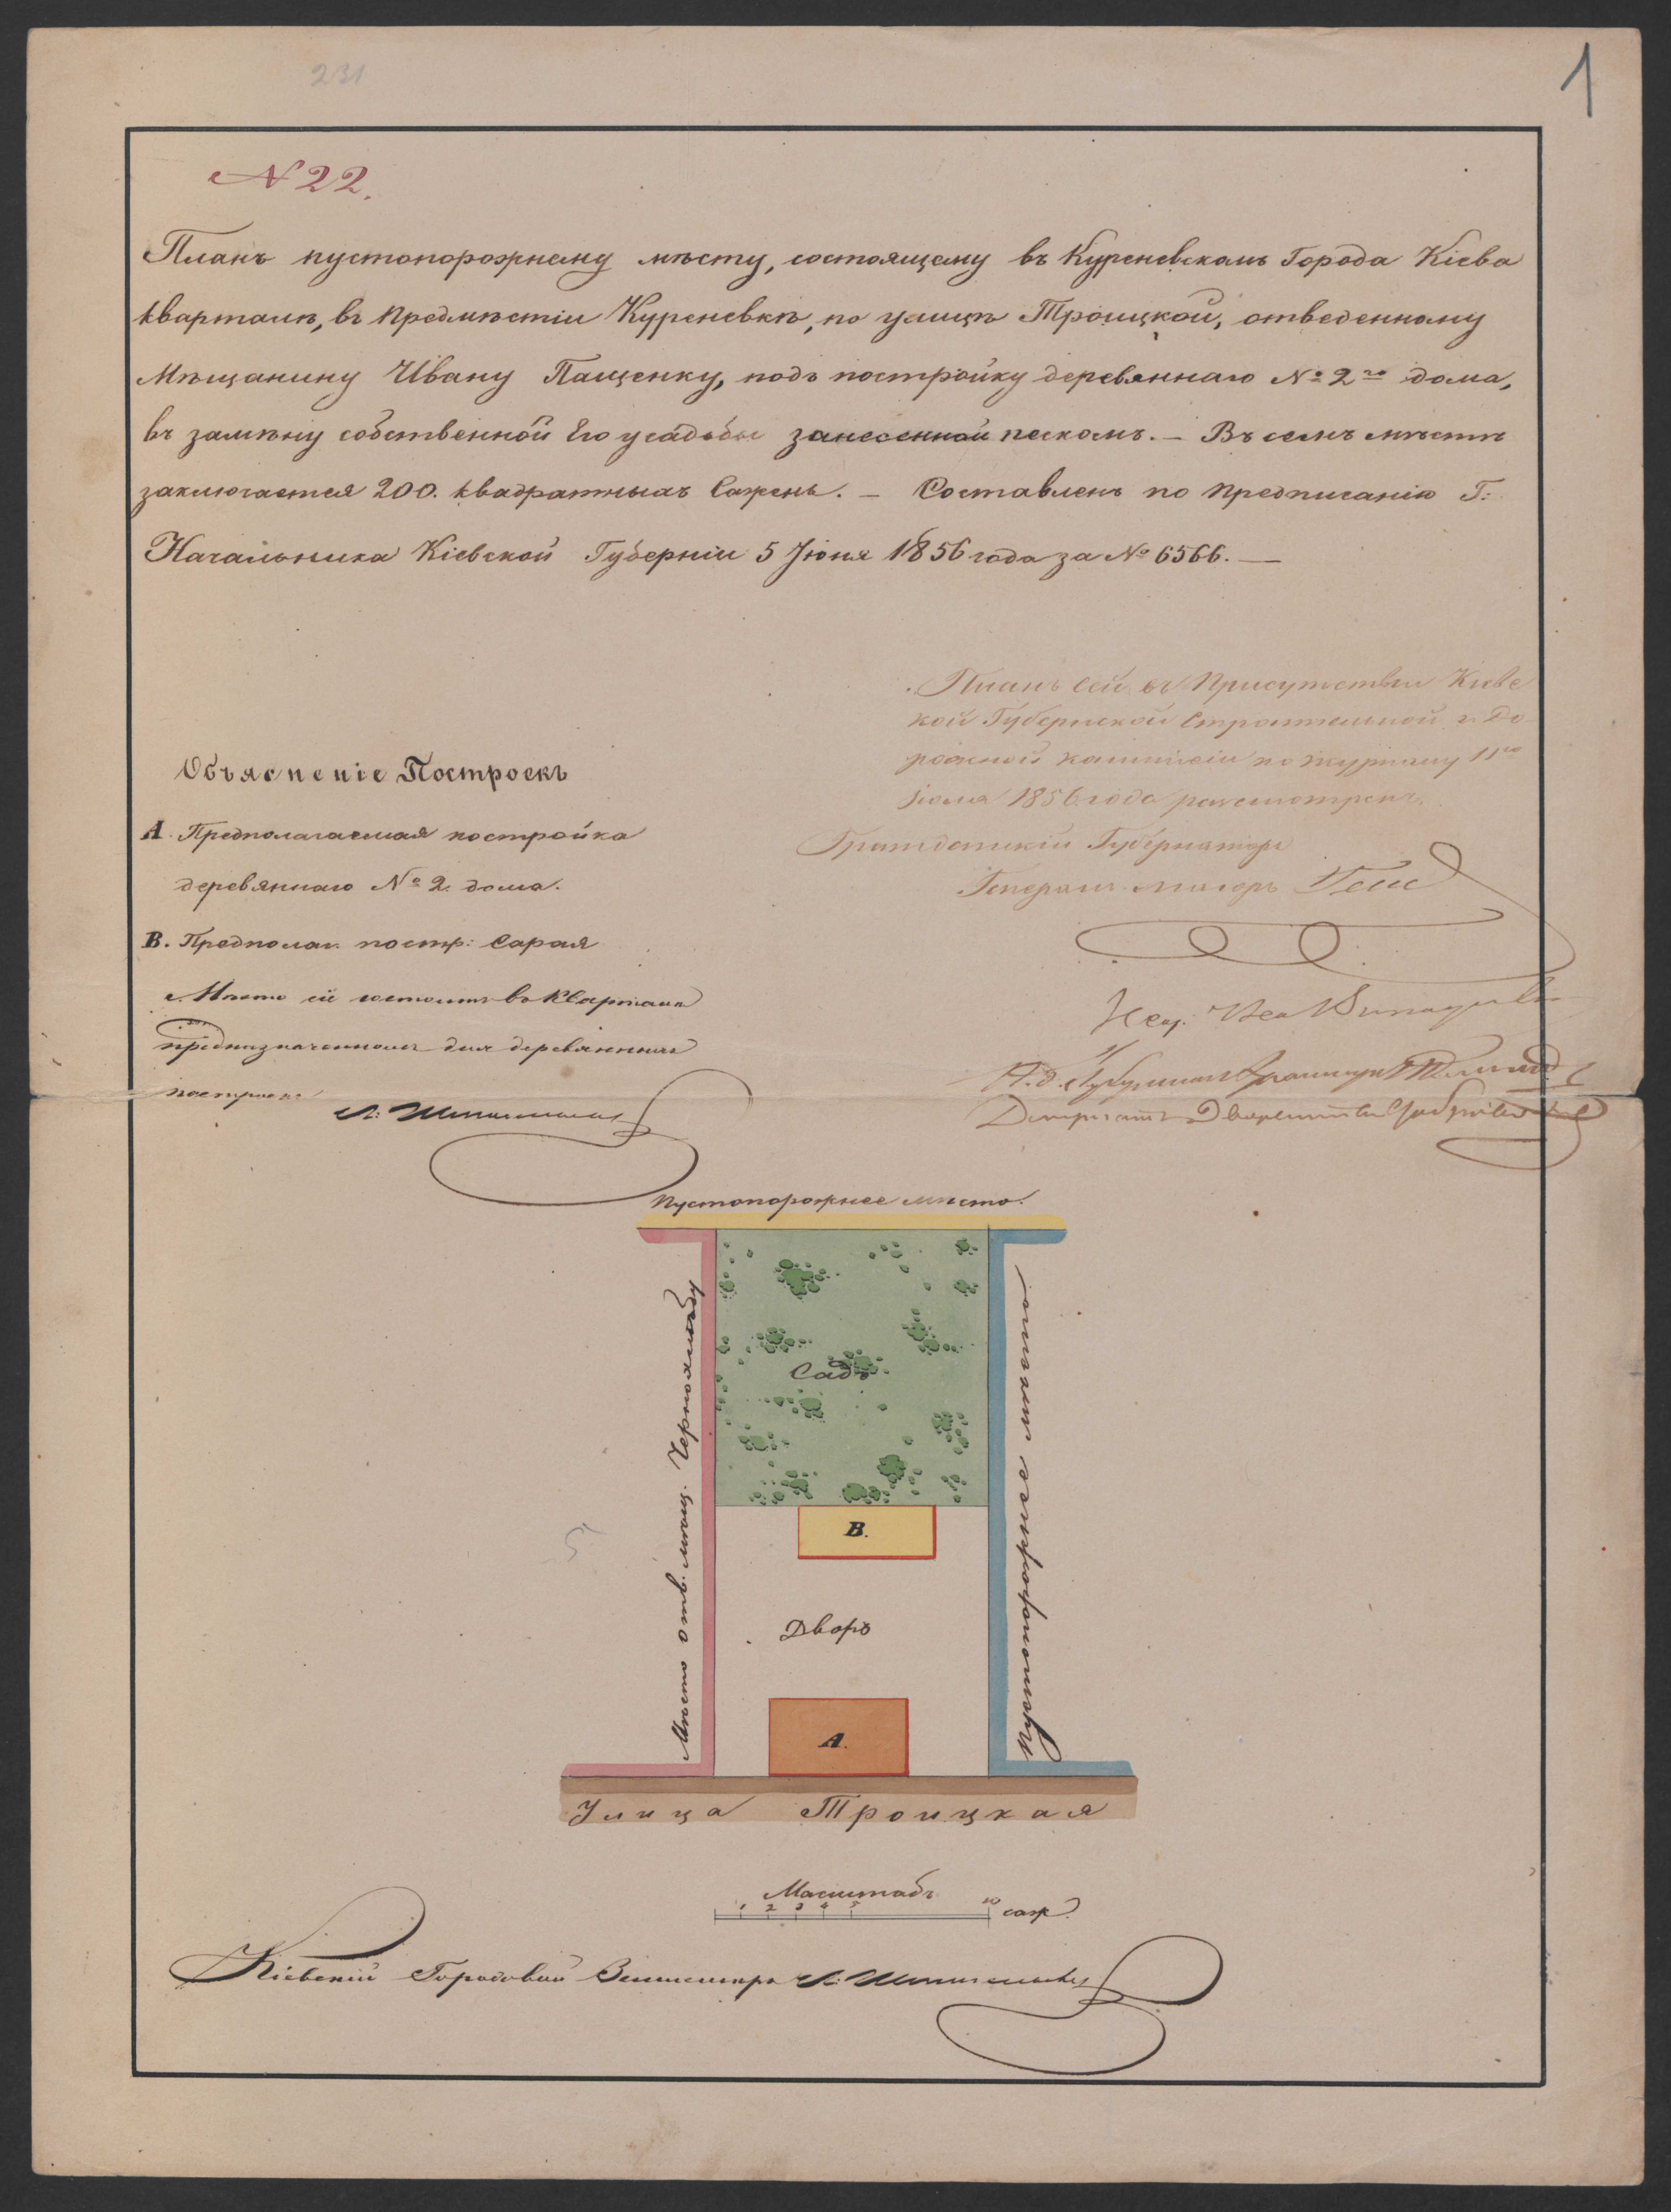 231
1
N 22.
Планъ пустопорожнему мѣсту, состоящему въ Куреневскомъ Города Кіева
кварталѣ, въ предмѣстіи Куреневкѣ, по улицѣ Троицкой, отведенному
Мѣщанину Ивану Пащенку, подъ постройку деревяннаго № 2го дома,
въ замѣну собственной Его усадьбы занесенной пескомъ. — Въ семъ мѣстѣ
заключается 200. квадратныхъ Сажень. — Составленъ по предписанію Г:
Начальника Кіевской Губерніи 5 Іюня 1856 года за № 6566. —
Планъ сей въ Присутствіи Кіевс
кой Губернской Строительной и До
рожной Коммисіи по журналу 11го
Іюля 1856 года разсмотренъ.
Гражданскій Губернаторъ
Генералъ Маіоръ Гессе
Объясненіе Построекъ
A. Предполагаемая постройка
деревяннаго № 2. дома.
B. Предполаг. постр: Сарая
Мѣсто сіе состоитъ въ Кварталѣ
предназначенномъ для деревянныхъ
построекъ
Депутатъ Дворянства
Пустопорожнее мѣсто.
Мѣсто отв. мѣщ.
Садъ
B.
Дворъ
A.
Пустопорожнее мѣсто
Улица Троицкая
Масштабъ
1 2 3 4 5 10 саж.
Кіевскій Городовой Землемѣръ